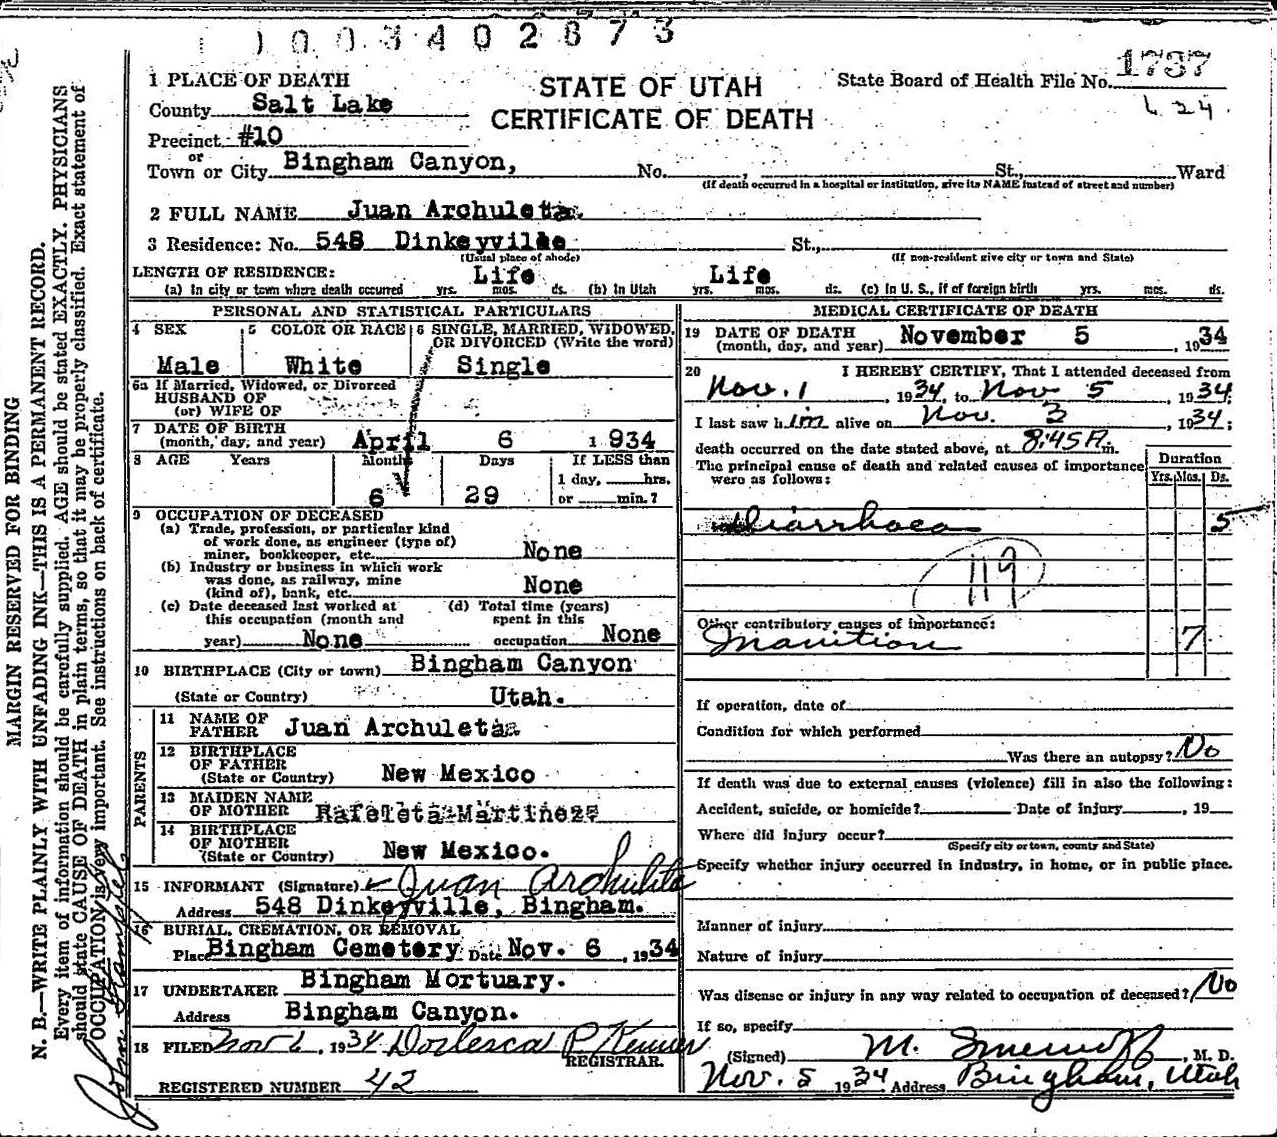 1003402673
1 PLACE OF DEATH
STATE OF UTAH
CERTIFICATE OF DEATH
State Board of Health File No. 1737
County Salt Lake
Precinct #10
or
Town or City Bingham Canyon, No. , St., Ward
(If death occurred in a hospital or institution, give its NAME instead of street and number)
2 FULL NAME Juan Archuleta.
3 Residence: No. 548 Dinkeyville St.,
(Usual place of abode) (If non-resident give city or town and State)
LENGTH OF RESIDENCE: Life Life
(a) In city or town where death occurred yrs. mos. ds. (b) In Utah yrs. mos. ds. (c) In U. S., if of foreign birth yrs. mos. ds.
PERSONAL AND STATISTICAL PARTICULARS
4 SEX 5 COLOR OR RACE 6 SINGLE, MARRIED, WIDOWED, OR DIVORCED (Write the word)
Male White Single
6a If Married, Widowed, or Divorced
HUSBAND OF
(or) WIFE OF
7 DATE OF BIRTH
(month, day, and year) April 6 1934
8 AGE Years Months Days If LESS than
1 day, hrs.
6 29 or min.?
9 OCCUPATION OF DECEASED
(a) Trade, profession, or particular kind
of work done, as engineer (type of)
miner, bookkeeper, etc. None
(b) Industry or business in which work
was done, as railway, mine
(kind of), bank, etc. None
(c) Date deceased last worked at (d) Total time (years)
this occupation (month and spent in this
year) None occupation None
10 BIRTHPLACE (City or town) Bingham Canyon
(State or Country) Utah.
PARENTS
11 NAME OF
FATHER Juan Archuleta
12 BIRTHPLACE
OF FATHER
(State or Country) New Mexico
13 MAIDEN NAME
OF MOTHER Martinez
14 BIRTHPLACE
OF MOTHER
(State or Country) New Mexico.
15 INFORMANT (Signature) Juan Archulita
Address 548 Dinkeyville, Bingham.
16 BURIAL, CREMATION, OR REMOVAL
Place Bingham Cemetery Date Nov. 6, 1934
17 UNDERTAKER Bingham Mortuary.
Address Bingham Canyon.
18 FILED Nov 6, 1934 P. REGISTRAR.
REGISTERED NUMBER 42
MEDICAL CERTIFICATE OF DEATH
19 DATE OF DEATH
(month, day, and year) November 5, 1934
20 I HEREBY CERTIFY, That I attended deceased from
Nov. 1, 1934, to Nov 5, 1934;
I last saw him alive on Nov. 3, 1934;
death occurred on the date stated above, at 8:45 P. m.
The principal cause of death and related causes of importance
were as follows:
Duration
Yrs. Mos. Ds.
Diarrhoea 5
119
Other contributory causes of importance:
Inanition 7
If operation, date of
Condition for which performed
Was there an autopsy? No
If death was due to external causes (violence) fill in also the following:
Accident, suicide, or homicide? Date of injury , 19
Where did injury occur?
(Specify city or town, county and State)
Specify whether injury occurred in industry, in home, or in public place.
Manner of injury
Nature of injury
Was disease or injury in any way related to occupation of deceased? No
If so, specify
(Signed) M. , M. D.
Nov. 5 1934 Address Bingham, Utah
MARGIN RESERVED FOR BINDING
N. B.—WRITE PLAINLY WITH UNFADING INK—THIS IS A PERMANENT RECORD.
Every item of information should be carefully supplied. AGE should be stated EXACTLY. PHYSICIANS
should state CAUSE OF DEATH in plain terms, so that it may be properly classified. Exact statement of
OCCUPATION is very important. See instructions on back of certificate.
John